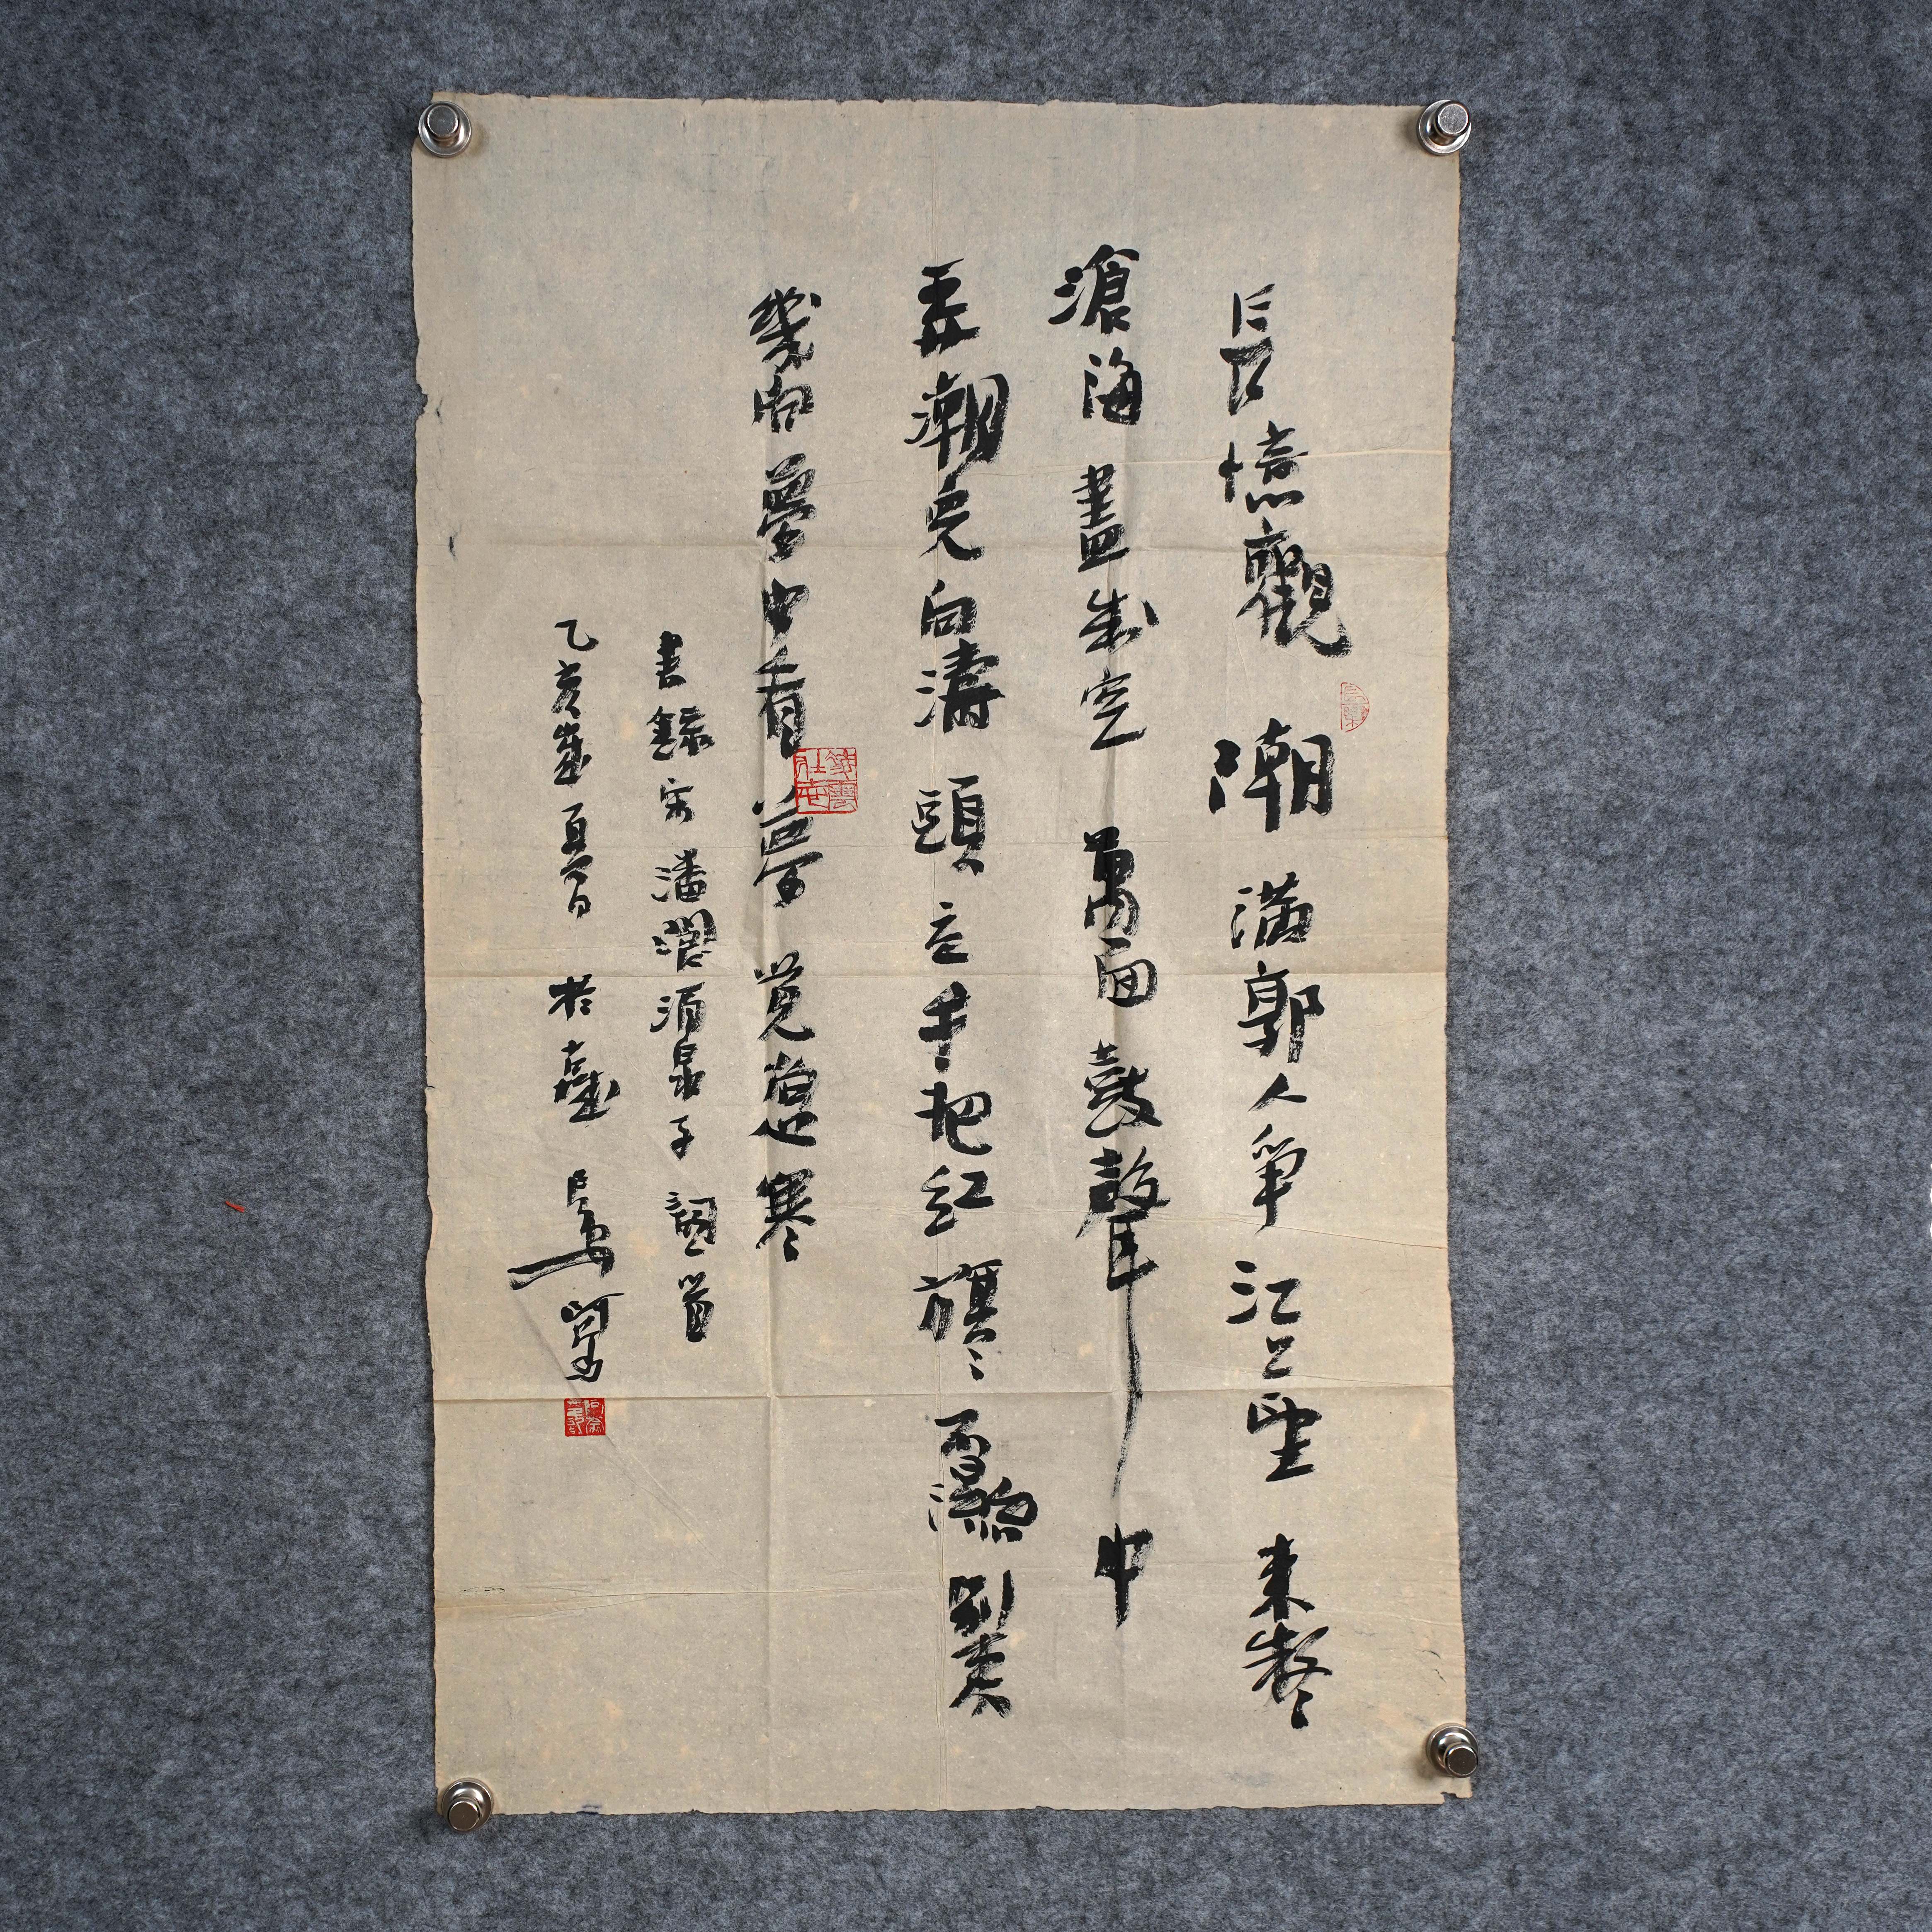 長憶觀潮滿郭人爭江上望來疑
滄海盡成空萬面鼓聲中
弄潮兒向濤頭立手把紅旗旗不濕別來
幾向夢中看夢覺尚心寒
書錄宋潘閬酒泉子詞一首
乙亥歲夏日於